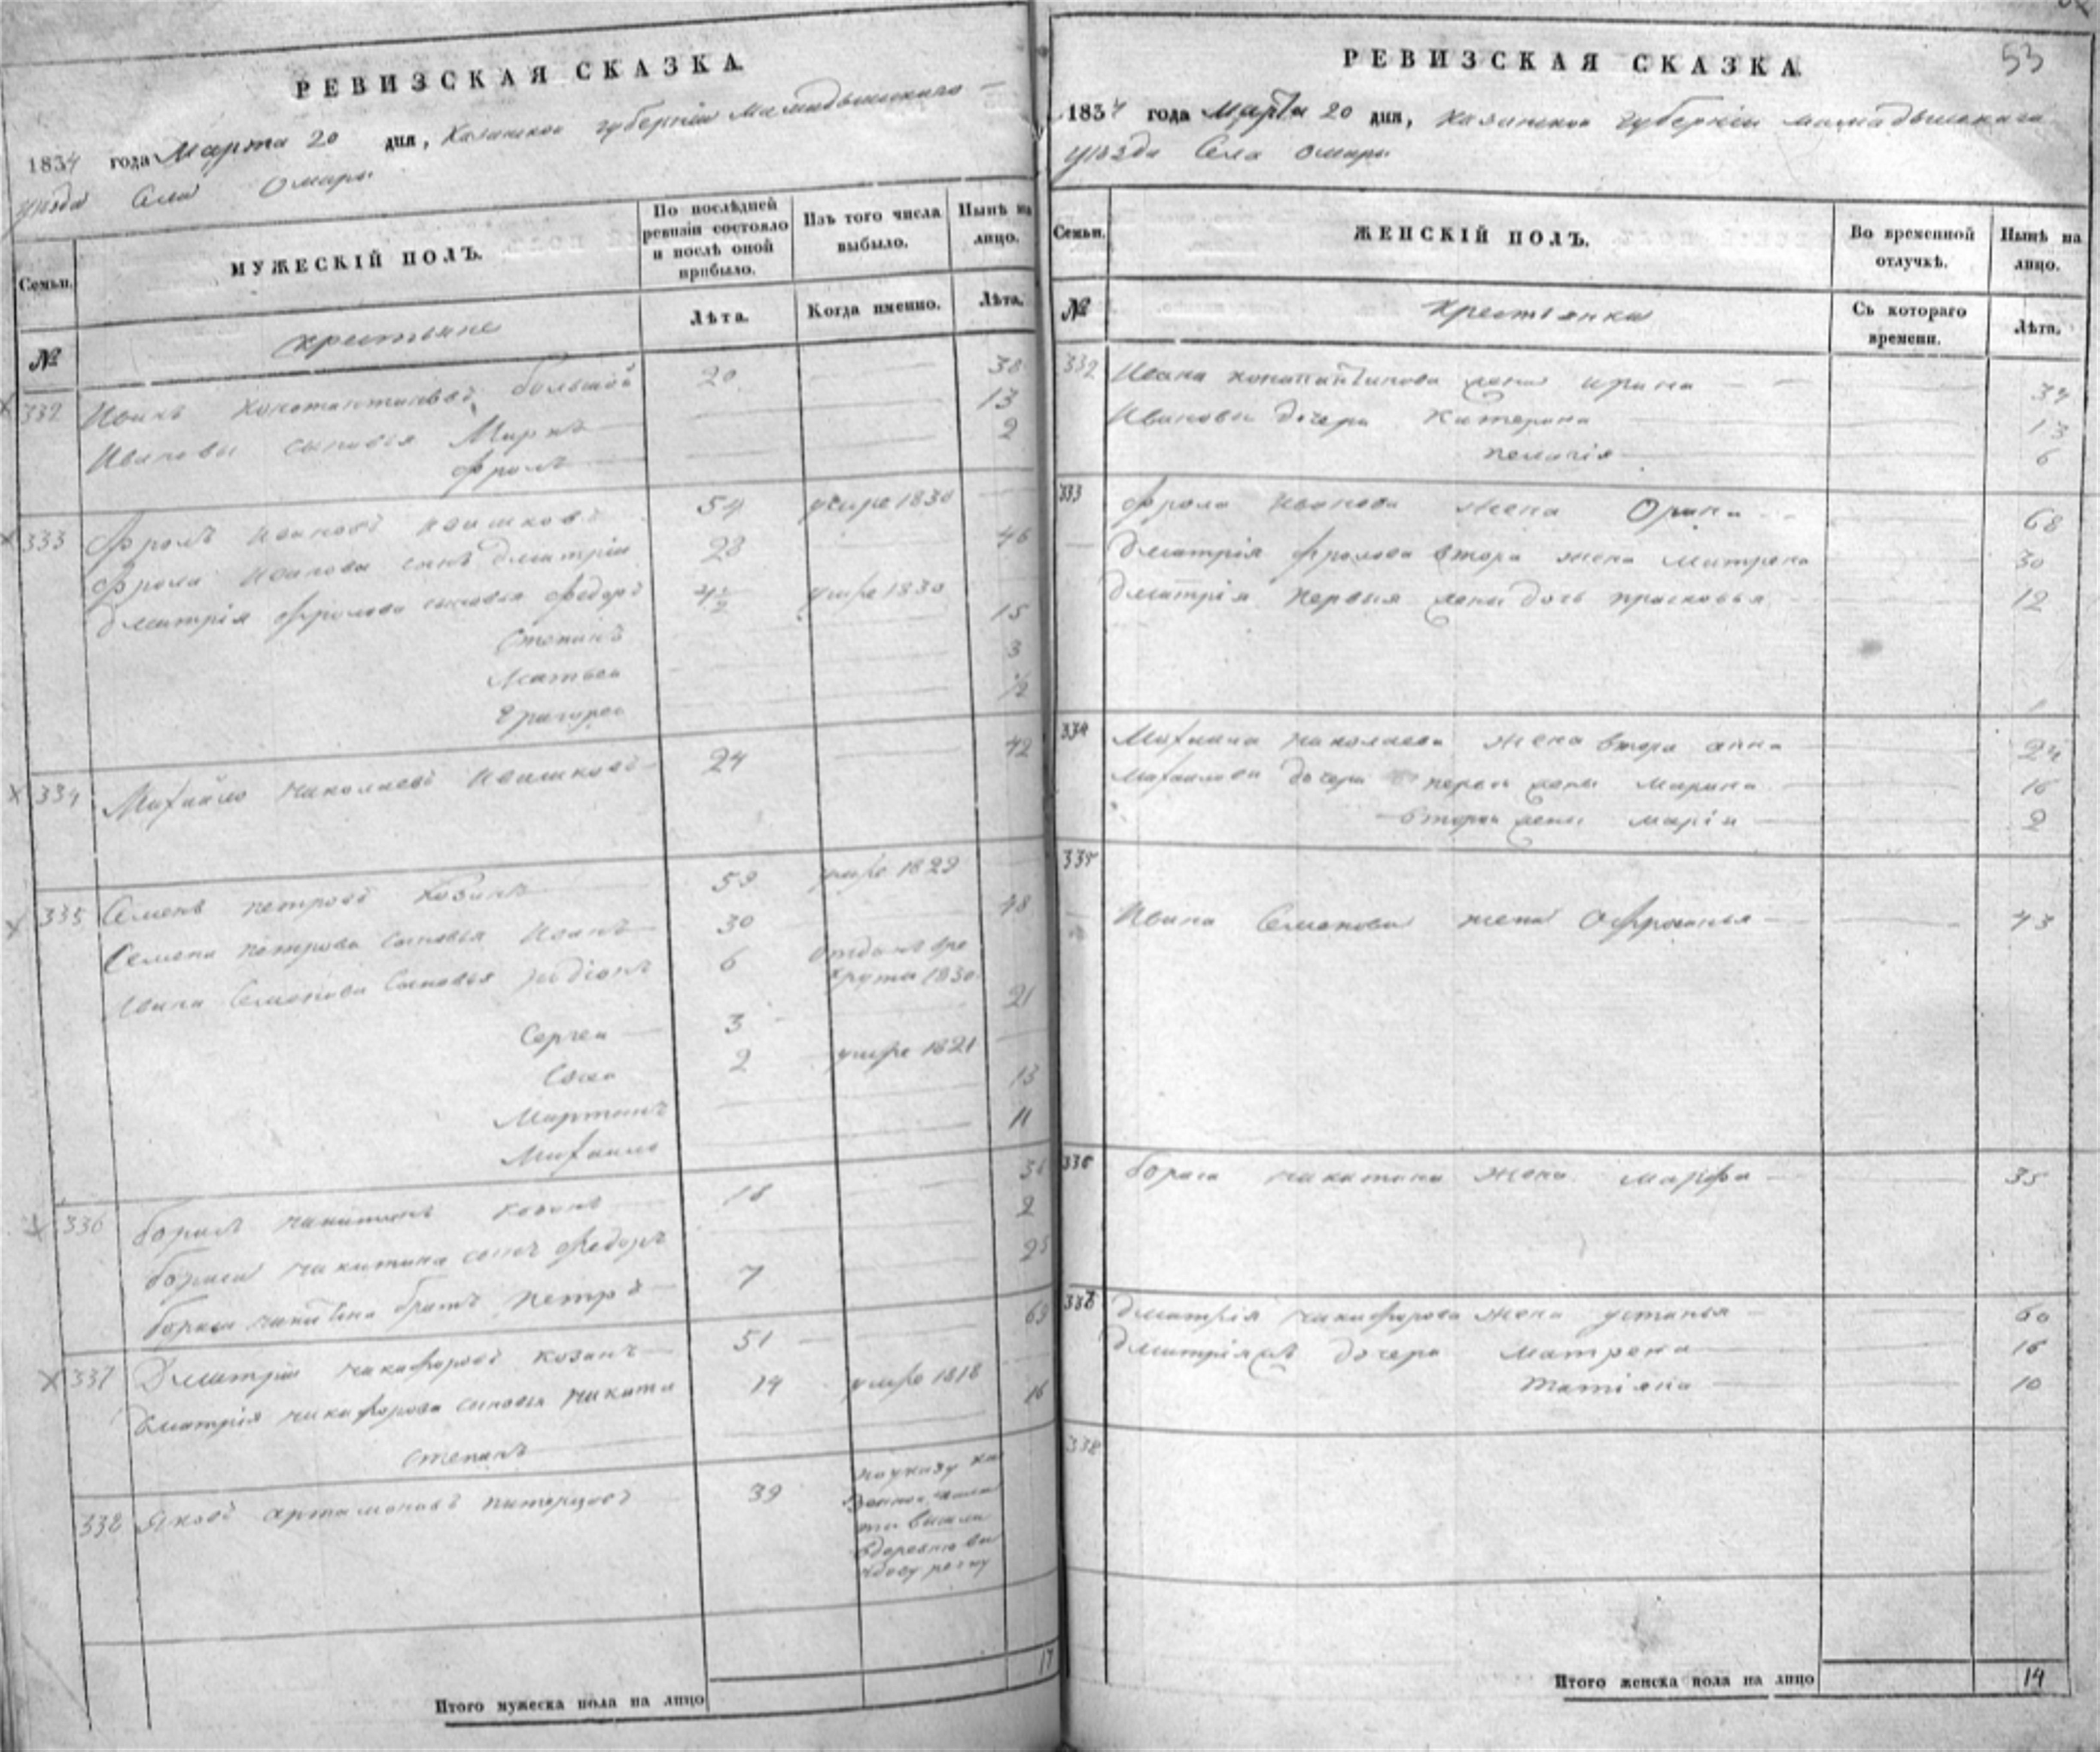 РЕВИЗСКАЯ СКАЗКА.
1834 года Марта 20 дня, Казанской губернии Мамадышскаго
уѣзда Села Омары
Семьи.
МУЖЕСКІЙ ПОЛЪ.
По послѣдней ревизіи состояло и послѣ оной прибыло.
Изъ того числа выбыло.
Нынѣ на лицо.
№
крестьяне
Лѣта.
Когда именно.
Лѣта.
332 Иванъ Константиновъ большой 20 38
Ивановы сыновья Маркъ 13
Фролъ 2
333 Фролъ Ивановъ Ившковъ 54 умре 1830
Фрола Иванова сынъ Дмитрій 28 46
Дмитрія Фролова сыновья Федоръ умре 1830
Степанъ 15
Матвей 3
Григорей 1/2
334 Михайло Николаевъ 24 42
335 Семенъ Петровъ Козинъ 59 умре 1829
Семена Петрова сыновья Иванъ 30 48
Ивана Семенова сыновья Родіонъ 6 отданъ вре
крута 1830
Сергеи 3 21
Сава 2 умре 1821
Мартинъ 13
Михайло 11
336 Борисъ Никитинъ Козинъ 18 36
Бориса Никитина сынъ Федоръ 2
Бориса Никитина братъ Петръ 7 25
337 Дмитрій Никифоровъ Козинъ 51 69
Дмитрія Никифорова сыновья Никита 14 умре 1818
Степанъ 16
338 Яковъ Артамоновъ 39 по указу ка
зенной пала
ты
в деревню
Итого мужеска пола на лицо 17
53
РЕВИЗСКАЯ СКАЗКА.
1834 года Марта 20 дня, Казанской губерніи Мамадышскаго
уѣзда Села Омары
Семьи.
ЖЕНСКІЙ ПОЛЪ.
Во временной отлучкѣ.
Нынѣ на лицо.
№
крестьянки
Съ котораго времени.
Лѣта.
332 Ивана Константинова жена Ирина 34
Ивановы дочери Катерина 13
Пелагія 6
333 Фрола Иванова жена Орина 68
Дмитрія Фролова втора жена Матрена 30
Дмитрія первыя жены дочь Прасковья 12
334 Михаила Николаева жена втора Анна 24
Михайловы дочери первой жены Марина 16
второй жены Марія 2
335
Ивана Семенова жена Офросинья 43
336 Бориса Никитина жена Марфа 35
337 Дмитрія Никифорова жена Устинья 60
дочери Матрена 16
Татіяна 10
338
Итого женска пола на лицо 14